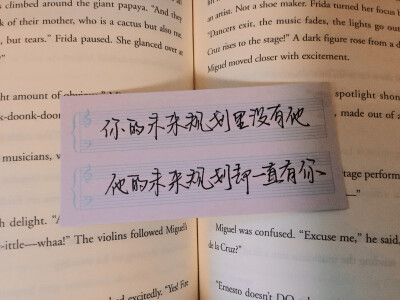 climbed around the giant papaya. "And they
of their mother, who is a cactus but also
but tears." Frida paused. She glanced over
ht amount of obvious."
k-doonk-doonk
musicians,
你的未来规划里没有他
他的未来规划却一直有你
h delight.
-ittle—whaa!" The violins followed
excitedly. "Yes!
an artist. Not a shoe maker. Frida turned her focus
"Dancers exit, the music fades, the lights go
Cruz rises to the stage!" A dark figure rose from a
Miguel moved closer with excitement.
spotlight
, made out of
stage
Miguel was confused. "Excuse me," he said,
de la Cruz?"
"Ernesto doesn't DO